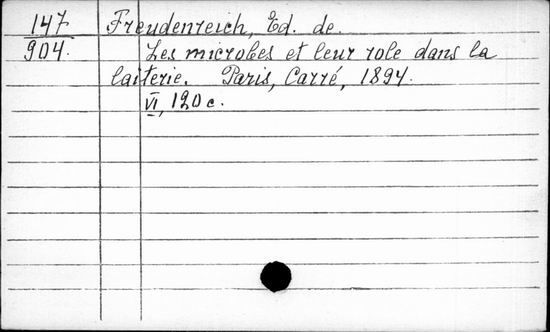 147 Freudenreich, Ed. de.
904. Les microbes et leur role dans la
laiterie. Paris, Carré, 1894.
VI, 120 c.